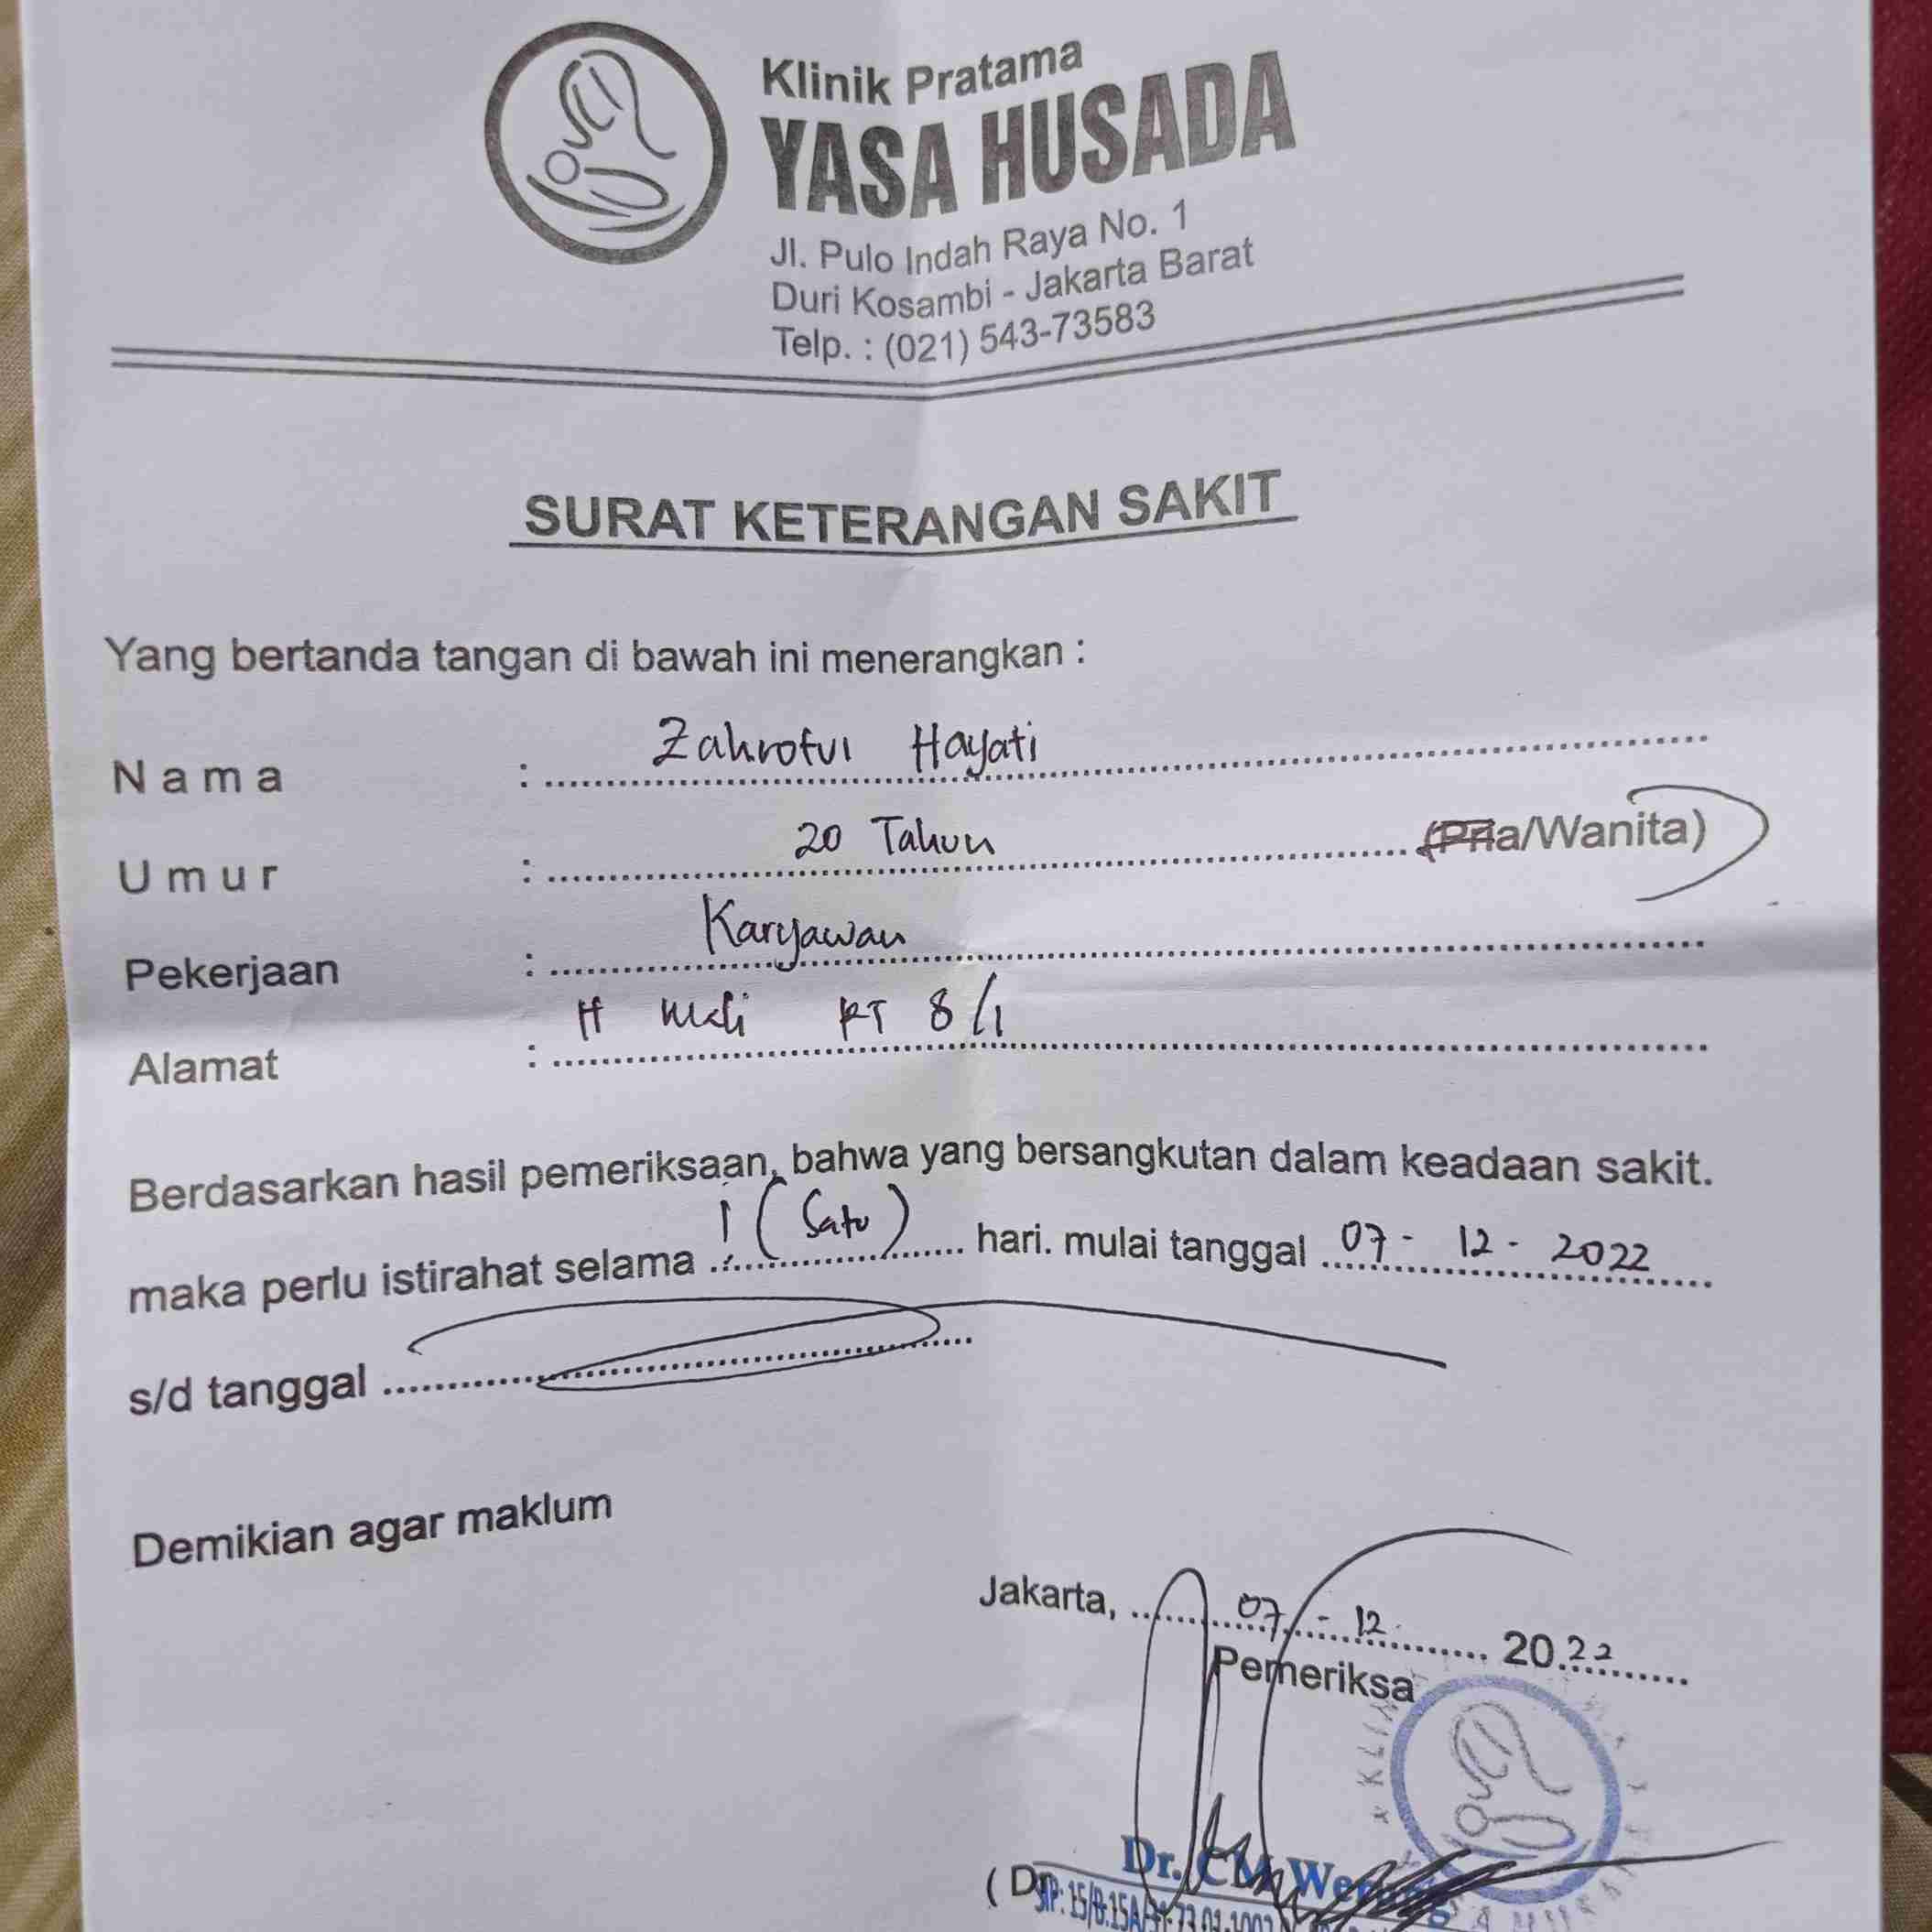 Klinik Pratama
YASA HUSADA
Jl. Pulo Indah Raya No. 1
Duri Kosambi - Jakarta Barat
Telp. : (021) 543-73583
SURAT KETERANGAN SAKIT
Yang bertanda tangan di bawah ini menerangkan :
Nama : Zahrotul Hayati
Umur : 20 Tahun (Pria/Wanita)
Pekerjaan : Karyawan
Alamat : H RT 8/1
Berdasarkan hasil pemeriksaan, bahwa yang bersangkutan dalam keadaan sakit.
maka perlu istirahat selama 1 (Satu) hari. mulai tanggal 07 - 12 - 2022
s/d tanggal
Demikian agar maklum
Jakarta, 07 - 12 - 2022
Pemeriksa
(Dr.
Dr. CM